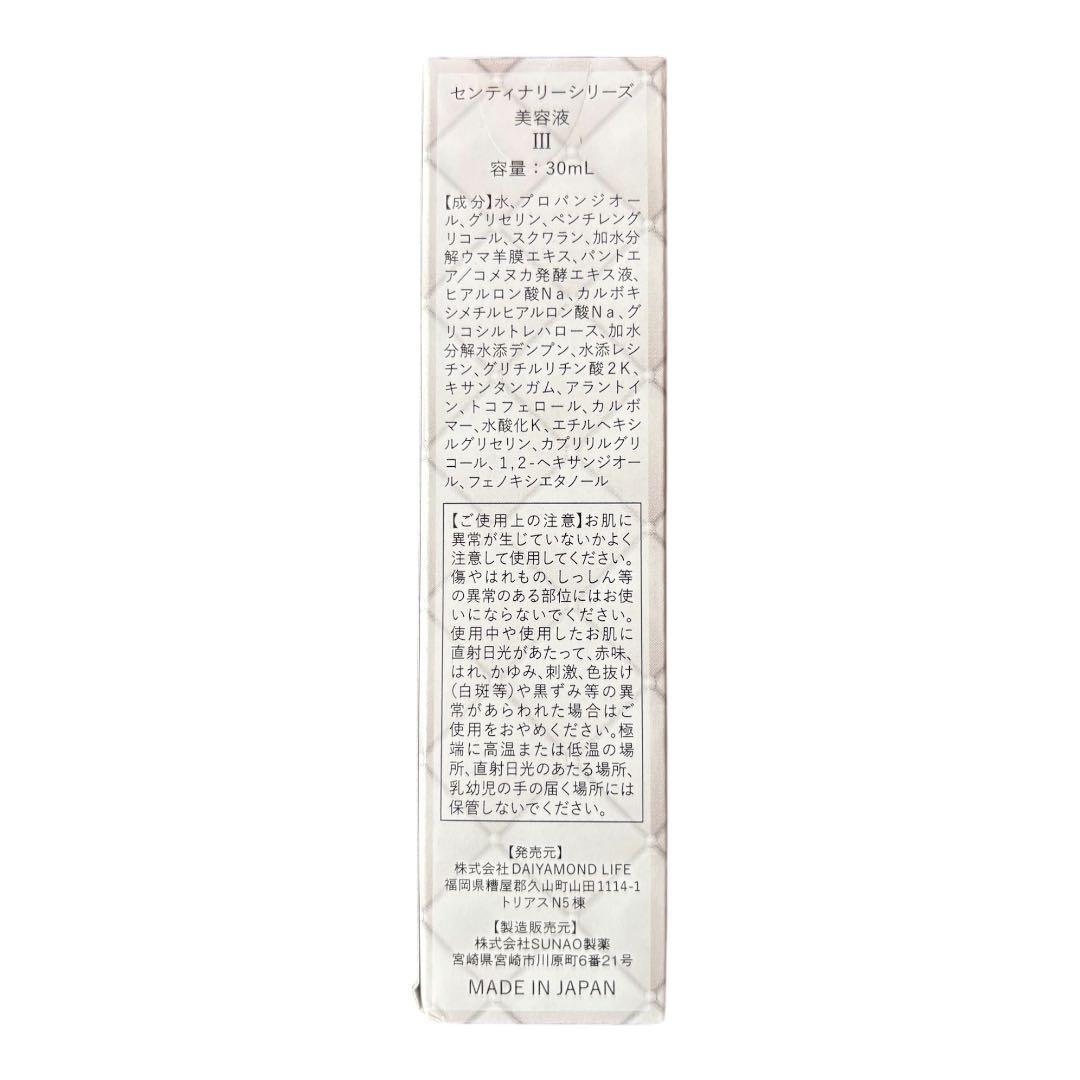 センティナリーシリーズ
美容液
III
容量：30mL
【成分】水、プロパンジオー
ル、グリセリン、ペンチレング
リコール、スクワラン、加水分
解ウマ羊膜エキス、パントエ
ア／コメヌカ発酵エキス液、
ヒアルロン酸Na、カルボキ
シメチルヒアルロン酸Na、グ
リコシルトレハロース、加水
分解水添デンプン、水添レシ
チン、グリチルリチン酸2K、
キサンタンガム、アラントイ
ン、トコフェロール、カルボ
マー、水酸化K、エチルヘキシ
ルグリセリン、カプリリルグリ
コール、1,2-ヘキサンジオー
ル、フェノキシエタノール
【ご使用上の注意】お肌に
異常が生じていないかよく
注意して使用してください。
傷やはれもの、しっしん等
の異常のある部位にはお使
いにならないでください。
使用中や使用したお肌に
直射日光があたって、赤味、
はれ、かゆみ、刺激、色抜け
（白斑等）や黒ずみ等の異
常があらわれた場合はご
使用をおやめください。極
端に高温または低温の場
所、直射日光のあたる場所、
乳幼児の手の届く場所には
保管しないでください。
【発売元】
株式会社DAIYAMOND LIFE
福岡県糟屋郡久山町山田1114-1
トリアスN5棟
【製造販売元】
株式会社SUNAO製薬
宮崎県宮崎市川原町6番21号
MADE IN JAPAN